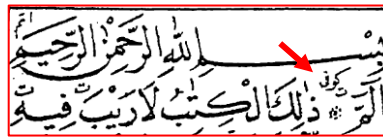 بِسْمِ اللّٰهِ الرَّحْمٰنِ الرَّحِيْمِ
كوفى
الٓمّٓ ۚ ذٰلِكَ الْكِتٰبُ لَا رَيْبَ فِيْهِ